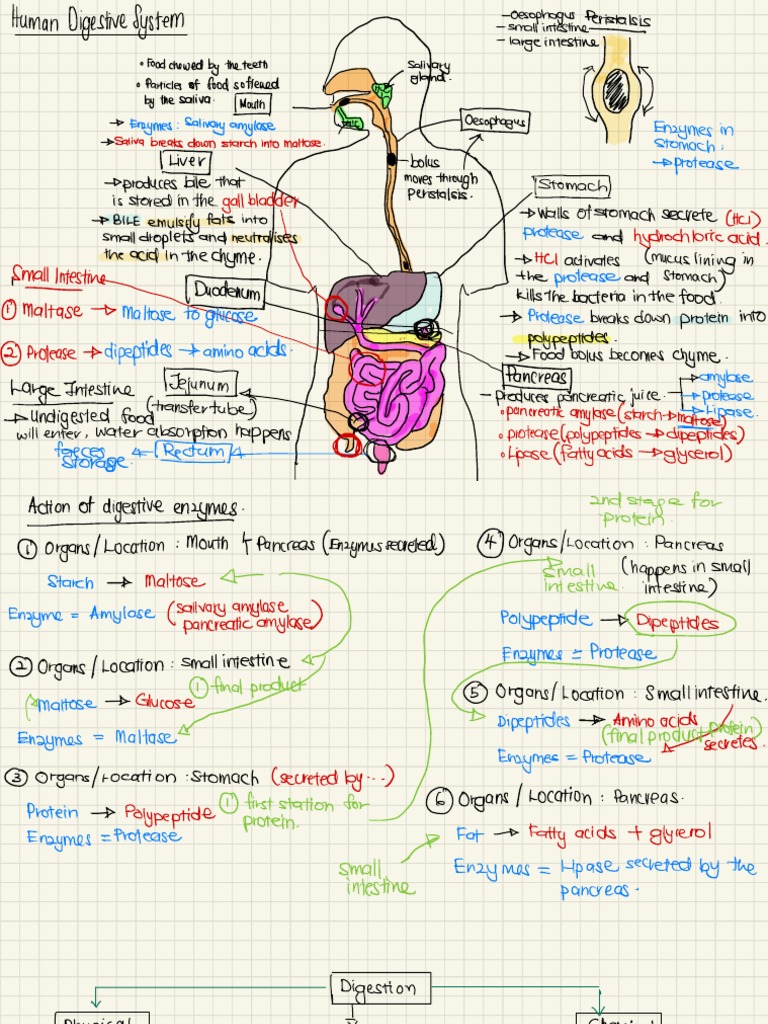 Human Digestive System
-Oesophagus Peristalsis
- small intestine
- large intestine
• Food chewed by the teeth
• Particles of food softened
by the saliva.
Mouth
→ Enzymes : Salivary amylase
→ Saliva breaks down starch into maltose.
Salivary
gland.
Oesophagus
bolus
moves through
Peristalsis.
Enzymes in
stomach:
→ protease
Liver
→ produces bile that
is stored in the gall bladder
→ BILE emulsify fats into
small droplets and neutralises
the acid in the chyme.
Stomach
→ Walls of stomach secrete (HCl)
protease and hydrochloric acid.
→ HCl activates (mucus lining in
the protease and stomach)
kills the bacteria in the food.
→ Protease breaks down protein into
polypeptides.
→ Food bolus becomes chyme.
Small Intestine
Duodenum
① Maltase → Maltose to glucose
② Protease → dipeptides → amino acids.
Pancreas
- produces pancreatic juice.
→ amylase
→ protease
→ Lipase.
• pancreatic amylase (starch → maltose)
• protease (polypeptides → dipeptides)
• Lipase (fatty acids → glycerol)
Large Intestine
Jejunum
(transfer tube)
→ undigested food
will enter, water absorption happens
faeces
storage.
Rectum
Action of digestive enzymes.
① Organs / Location : Mouth & Pancreas (Enzymes secreted)
Starch → Maltose
Enzyme = Amylase (salivary amylase
pancreatic amylase)
② Organs / Location : small intestine
① final product
Maltose → Glucose
Enzymes = Maltase
③ Organs / Location : Stomach (secreted by...)
Protein → Polypeptide
① first station for
protein.
Enzymes = Protease
small
intestine
2nd stage for
protein.
④ Organs / Location : Pancreas
(happens in small
intestine)
small
intestine.
Polypeptide → Dipeptides
Enzymes = Protease
⑤ Organs / Location : Small intestine.
Dipeptides → Amino acids
(final product protein)
secretes.
Enzymes = Protease
⑥ Organs / Location : Pancreas.
Fat → Fatty acids + glycerol
Enzymes = Lipase secreted by the
pancreas.
Digestion
Physical
Chemical